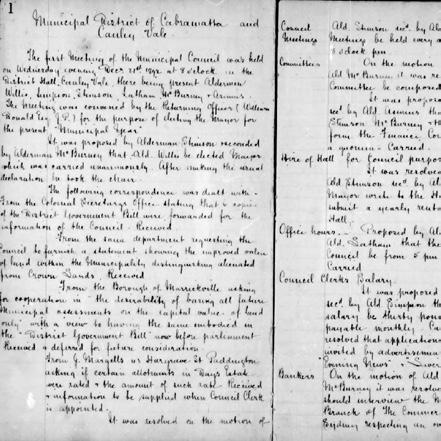 1
Municipal District of Cabramatta and
Canley Vale
The first Meeting of the Municipal Council was held
on Wednesday evening Decr 21st 1892 at 8 o'clock in the
District Hall, Canley Vale, there being present Aldermen
Willis, Simpson, Stinson, Latham, McBurney & Asimus.
The Meeting was convened by the Returning Officer (William
Ronald Esq J.P.) for the purpose of electing the Mayor for
the present "Municipal Year"
It was proposed by Alderman Stinson seconded
by Alderman McBurney that Ald. Willis be elected Mayor
which was carried unanimously. After making the usual
declaration he took the chair.
The following correspondence was dealt with -
From the Colonial Secretarys Office stating that copies
of the District Government Bill were forwarded for the
information of the Council - Received
From the same department requesting the
Council to furnish a statement showing the improved value
of land within the Municipality distinguishing alienated
from Crown Lands. Received
From the Borough of Marrickville asking
for cooperation in "the desirability of basing all future
Municipal assessments on the capital value of land
only" with a view to having the same embodied in
the "District Government Bill" now before parliament
Received & deferred for future consideration
From G. Margetts Hargrave St Paddington
asking if certain allotments in Days Estate
were rated & the amount of such rate. Received
& information to be supplied when Council Clerk
is appointed.
It was resolved on the motion of
Council
Meetings
Ald. Stinson secd. by Al
Meeting be held every
8 o'clock pm
Committees
On the motion
Ald McBurney it was re
Committee be composed
It was propos
secd by Ald. Asimus tha
Stinson McBurney
form the Finance Co
Carried.
Hire of Hall
for Council purpos
It was resolved
Ald Stinson secd by Al
Mayor write to the H
submit a yearly rent
Hall.
Office hours
Proposed by Al
Ald. Latham that the
Council be from 5 pm
Carried
Council Clerks Salary.
It was proposed
secd. by Ald Simpson tha
salary be thirty poun
payable monthly Ca
resolved that application
invited by advertiseme
"Evening News" & "Liver
Bankers
On the motion of Ald
McBurney it was resolved
should interview the M
Branch of The Commer
Sydney respecting an